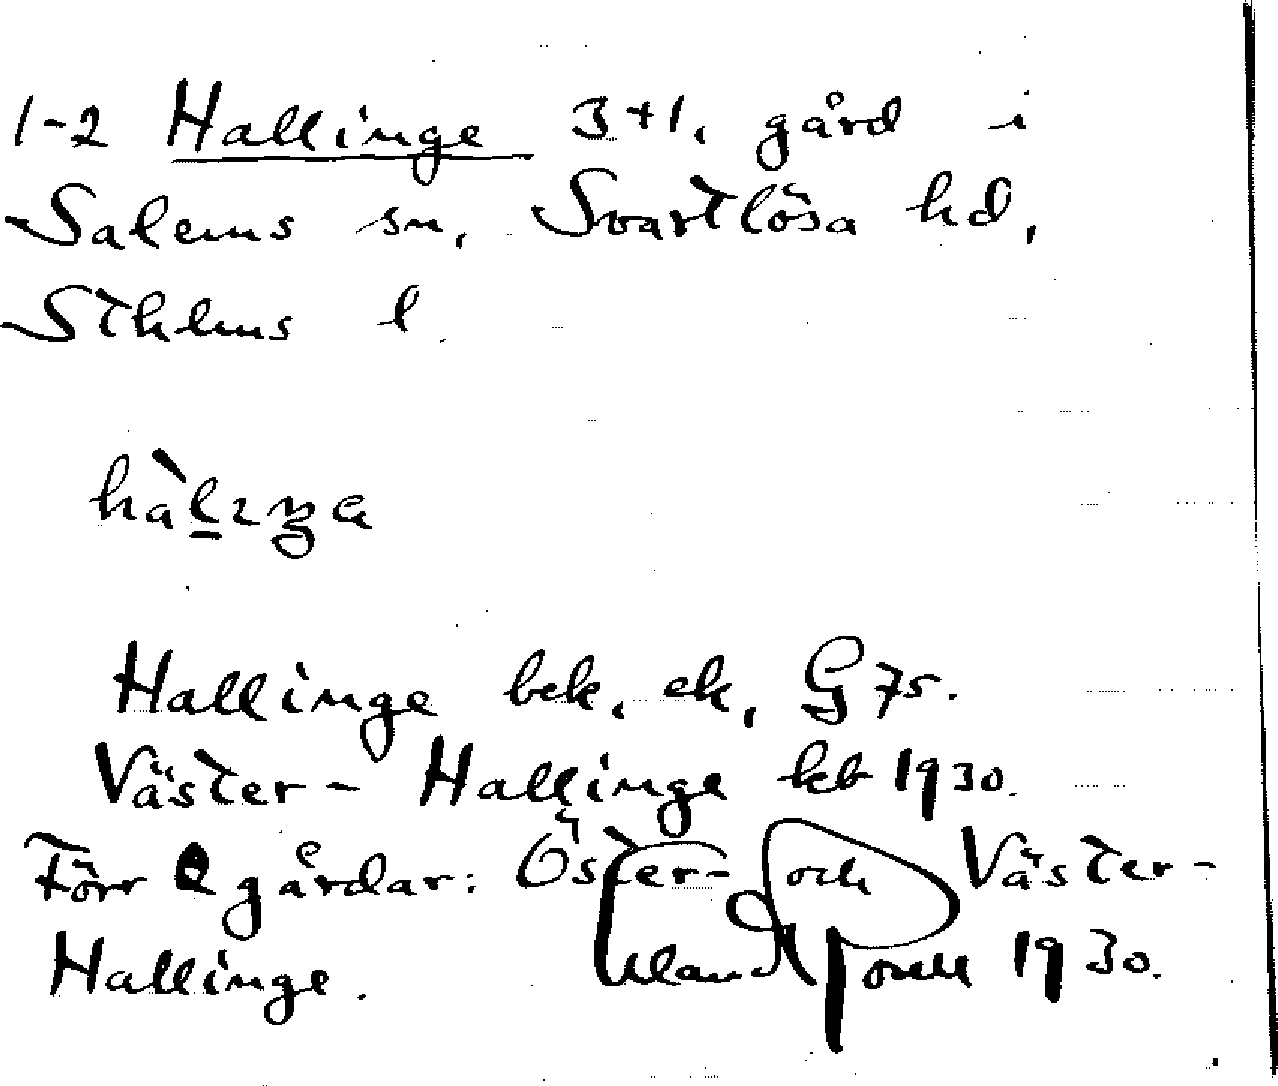 1-2 Hallinge 3+1, gård i
Salems sn, Svartlösa hd,
Sthlms l.
Hallinge bek, ek, G 75.
Väster-Hallinge kb 1930.
Förr 2 gårdar: Öster- och Väster-
Hallinge. 1930.